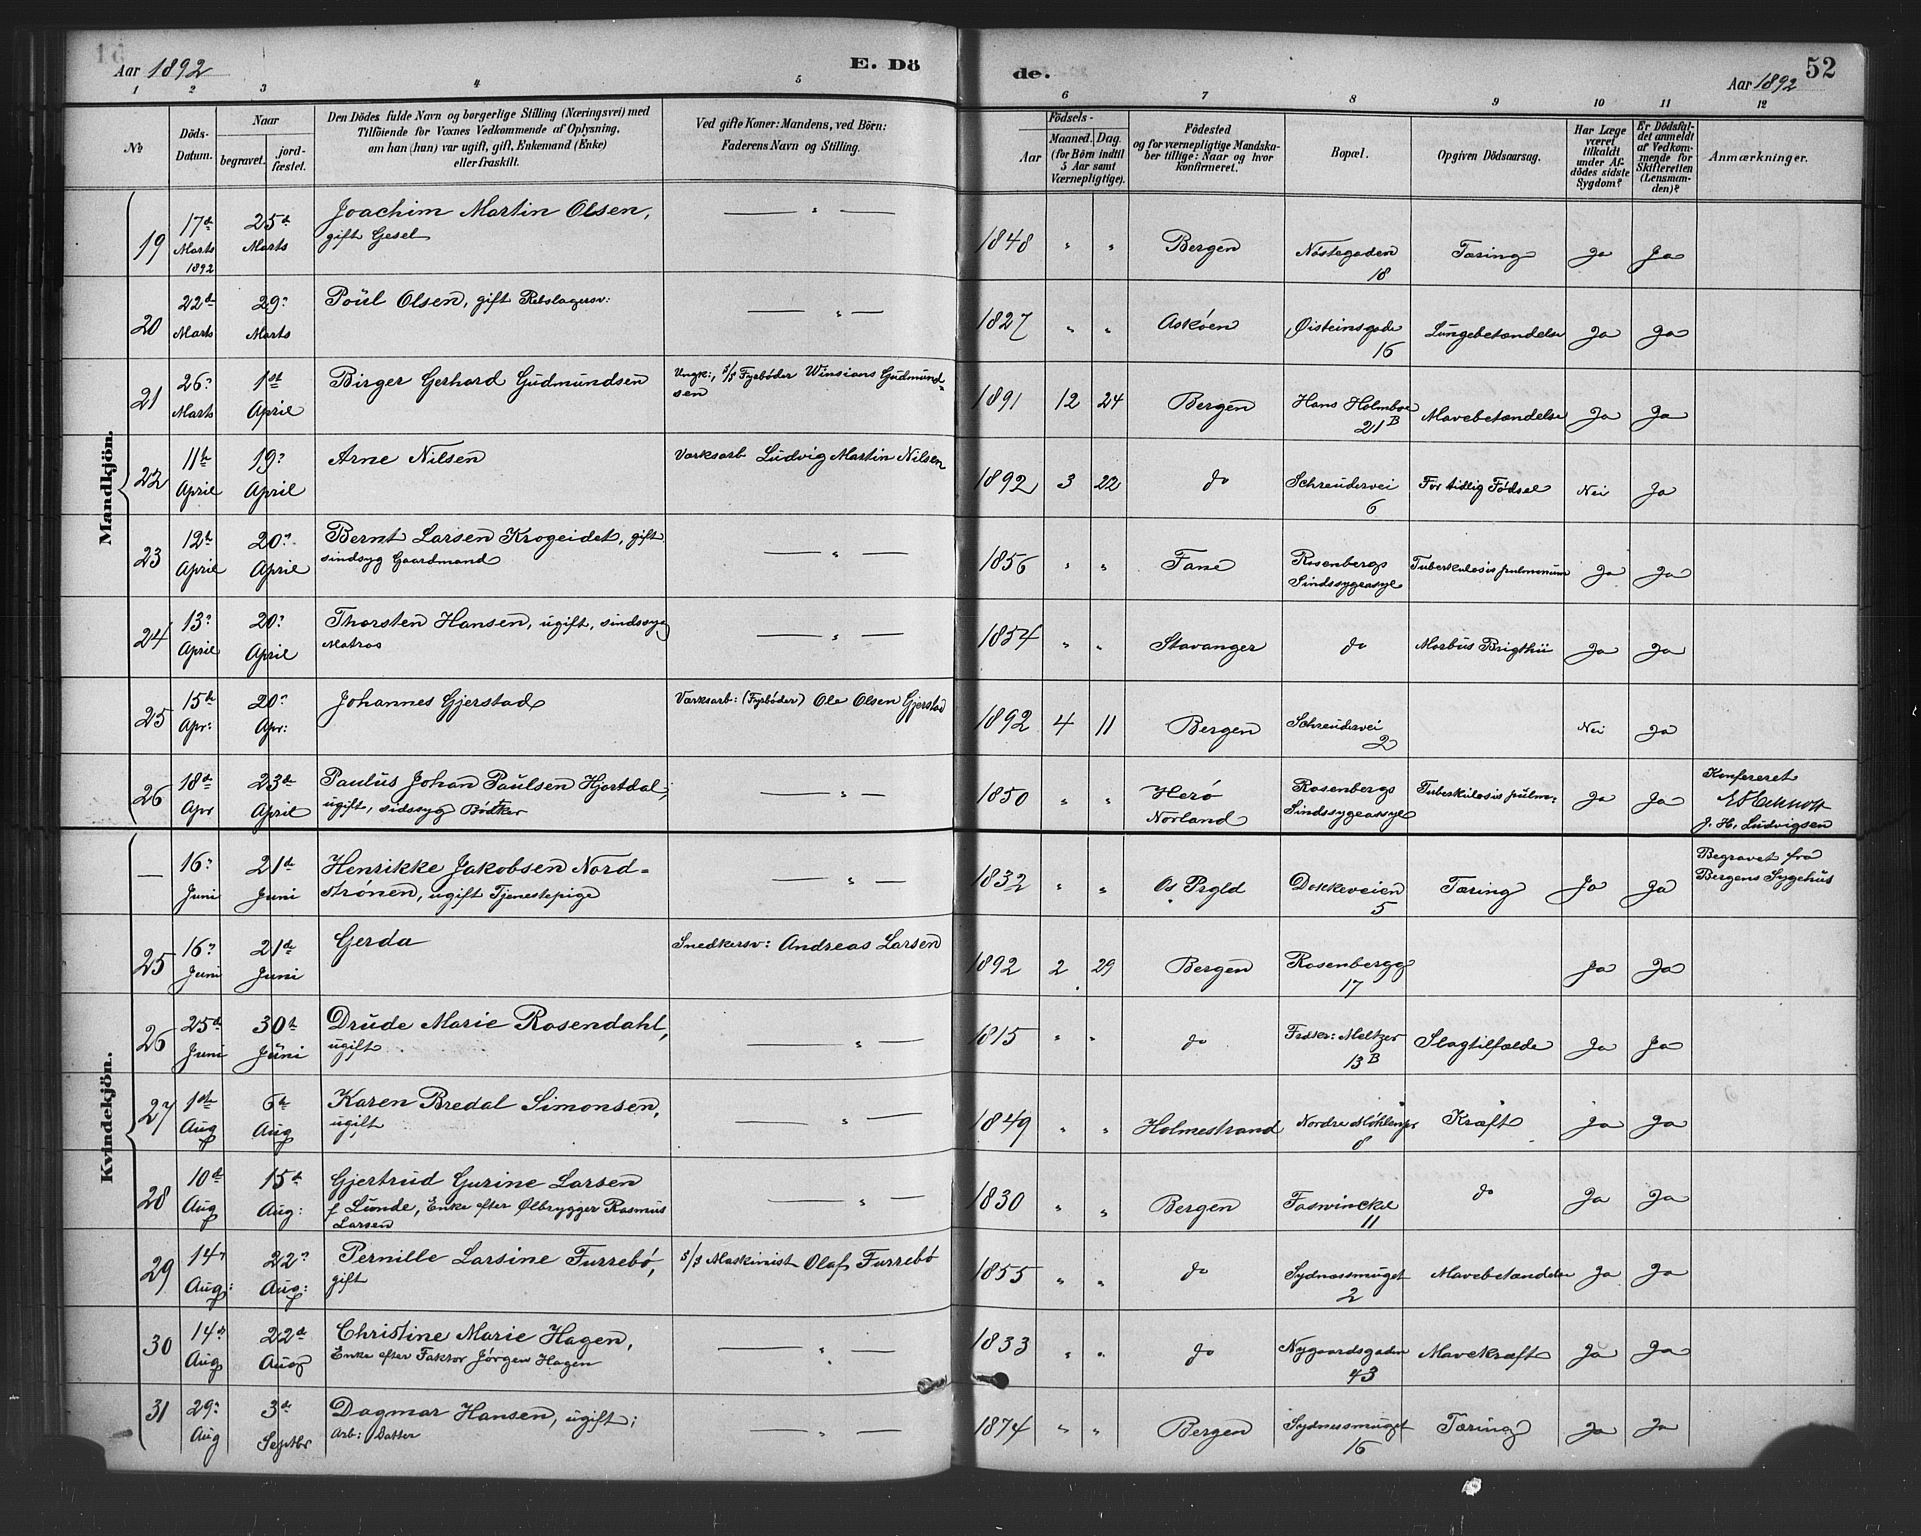 Aar 1892 E. Dö de. Aar 1892 52
1 2 3 4 5 6 7 8 9 10 11 12
No
Döds-Datum.
Naar
begravet.
jord-fæstet.
Den Dödes fulde Navn og borgerlige Stilling (Næringsvei) med
Tilföiende for Voxnes Vedkommende af Oplysning,
om han (hun) var ugift, gift, Enkemand (Enke)
eller fraskilt.
Ved gifte Koner: Mandens, ved Börn:
Faderens Navn og Stilling.
Födsels-
Aar
Maaned. Dag.
(for Börn indtil
5 Aar samt
Værnepligtige).
Födested
og for værnepligtige Mandska-
ber tillige: Naar og hvor
konfirmeret.
Bopæl.
Opgiven Dödsaarsag.
Har Læge
været
tilkaldt
under Af-
dödes sidste
Sygdom?
Er Dödsfal-
det anmeldt
af Vedkom-
mende for
Skifteretten
(Lensman-
den)?
Anmærkninger.
Mandkjön.
19 17d Marts 1892 25d Marts Joachim Martin Olsen, gift Gesel — " — 1848 " " Bergen Nöstegaden 18 Tæring Ja Ja
20 22d Marts 29: Marts Poul Olsen, gift Rebslagersv: — " — 1827 " " Askøen Øisteinsgade 16 Lungebetændelse Ja Ja
21 26: Marts 1st April Birger Gerhard Gudmundsen Ungk:, S/S Fyrbøder Winsians Gudmund-sen 1891 12 24 Bergen Hans Holmboe 21B Mavebetændelse Ja Ja
22 11te April 19: April Arne Nilsen Værksarb Ludvig Martin Nilsen 1892 3 22 do Schreudervei 6 For tidlig Födsel Nei Ja
23 12te April 20: April Bernt Larsen Krogeidet, gift sindsyg Gaardmand — " — 1856 " " Fane Rosenbergs Sindssygeasyl Tuberkulosis pulmonum Ja Ja
24 13: April 20: April Thorsten Hansen, ugift, sindssyg Matros — " — 1854 " " Stavanger do Morbus Brigthii Ja Ja
25 15de Apr: 20: Apr: Johannes Gjerstad Værksarb: (Fyrbøder) Ole Olsen Gjerstad 1892 4 11 Bergen Schreudervei 2 Nei Ja
26 18d Apr 23de April Paulus Johan Paulsen Hjortdal, ugift, sidssyg Bødker — " — 1850 " " Herø Norland Rosenbergs Sindssygeasyl Tuberkulosis pulm: Ja Ja Konfereret J. H. Ludvigsen
Kvindekjön.
— 16: Juni 21d Juni Henrikke Jakobsen Nord-strønen, ugift Tjenestepige — " — 1832 " " Os Prgld Dokkeveien 5 Tæring Ja Ja Begravet fra Bergens Sygehus
25 16: Juni 21d Juni Gerda Snedkersv: Andreas Larsen 1892 2 29 Bergen Rosenbergg 17 Ja Ja
26 25d Juni 30te Juni Drude Marie Rosendahl, ugift — " — 1815 " " do Fredkr: Meltzer 13B Slagtilfælde Ja Ja
27 1ste Aug 6te Aug Karen Bredal Simonsen, ugift — " — 1849 " " Holmestrand Nordre Møhlenpr 8 Kræft Ja Ja
28 10de Aug 15de Aug: Gjertrud Gurine Larsen f Lunde, Enke efter Ølbrygger Rasmus Larsen — " — 1830 " " Bergen Foswinckel 11 do Ja Ja
29 14: Aug: 22: Aug: Pernille Larsine Furrebø, gift S/S Maskinist Olaf Furrebø 1855 " " do Sydnessmuget 2 Mavebetændelse Ja Ja
30 14d Aug 22d Aug Christine Marie Hagen, Enke efter Faktor Jørgen Hagen — " — 1833 " " do Nygaardsgaden 43 Mavekræft Ja Ja
31 29: Aug 3d Septbr Dagmar Hansen, ugift; Arb: Datter — " — 1874 " " Bergen Sydnessmuget 16 Tæring Ja Ja